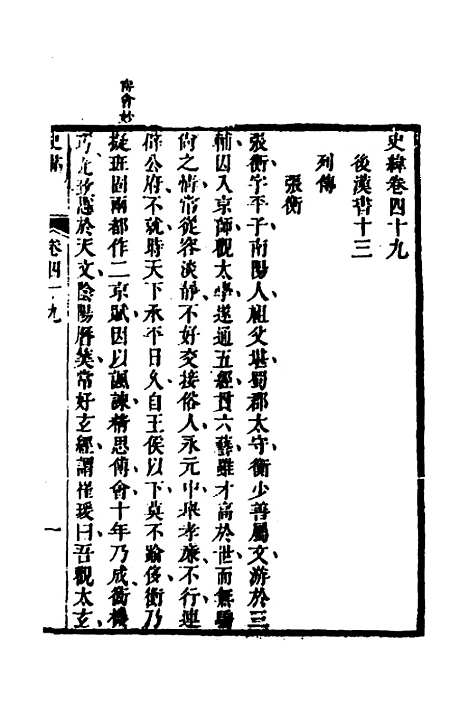 史緯卷四十九
後漢書十三
列傳
張衡
張衡字平子南陽人祖父堪蜀郡太守衡少善屬文游於三
輔因入京師觀太學遂通五經貫六藝雖才高於世而無驕
尚之情常從容淡靜不好交接俗人永元中舉孝廉不行連
辟公府不就時天下承平日久自王侯以下莫不踰侈衡乃
擬班固兩都作二京賦因以諷諫精思傅會十年乃成衡機
巧尤致思於天文陰陽曆筭常好玄經謂崔瑗曰吾觀太玄
傅會妙
史緯
卷四十九
一